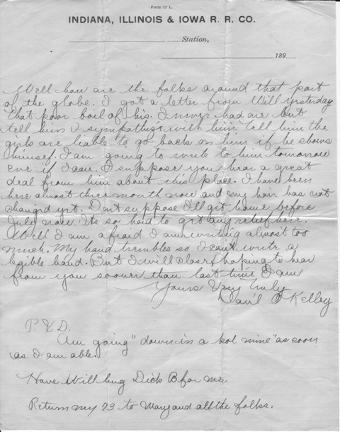 Form 17 L.
INDIANA, ILLINOIS & IOWA R. R. CO.
Station,
189
Well how are the folks around that part
of the globe. I got a letter from Will yesterday
that poor boil of his. I never had one but
tell him I sympathize with him, tell him the
girls are liable to go back on him if he shows
himself. I am going to write to him tomorrow
eve if I can. I suppose you hear a great
deal from him about this place. I have been
here almost three months now and my hair has not
changed yet. Don't suppose I'll get home before
. It's so hard to get any relief here.
Well I am afraid I am writing almost too
much. My hand trembles so I can't write a
legible hand. But I will close, hoping to hear
from you sooner than last time. I am
Yours Very Truly
Dan'l O'Kelley
P. S.
Am going "down in a kol mine" as soon
as I am able.
Have Will hug Dick B for me.
Return my 73 to May and all the folks.